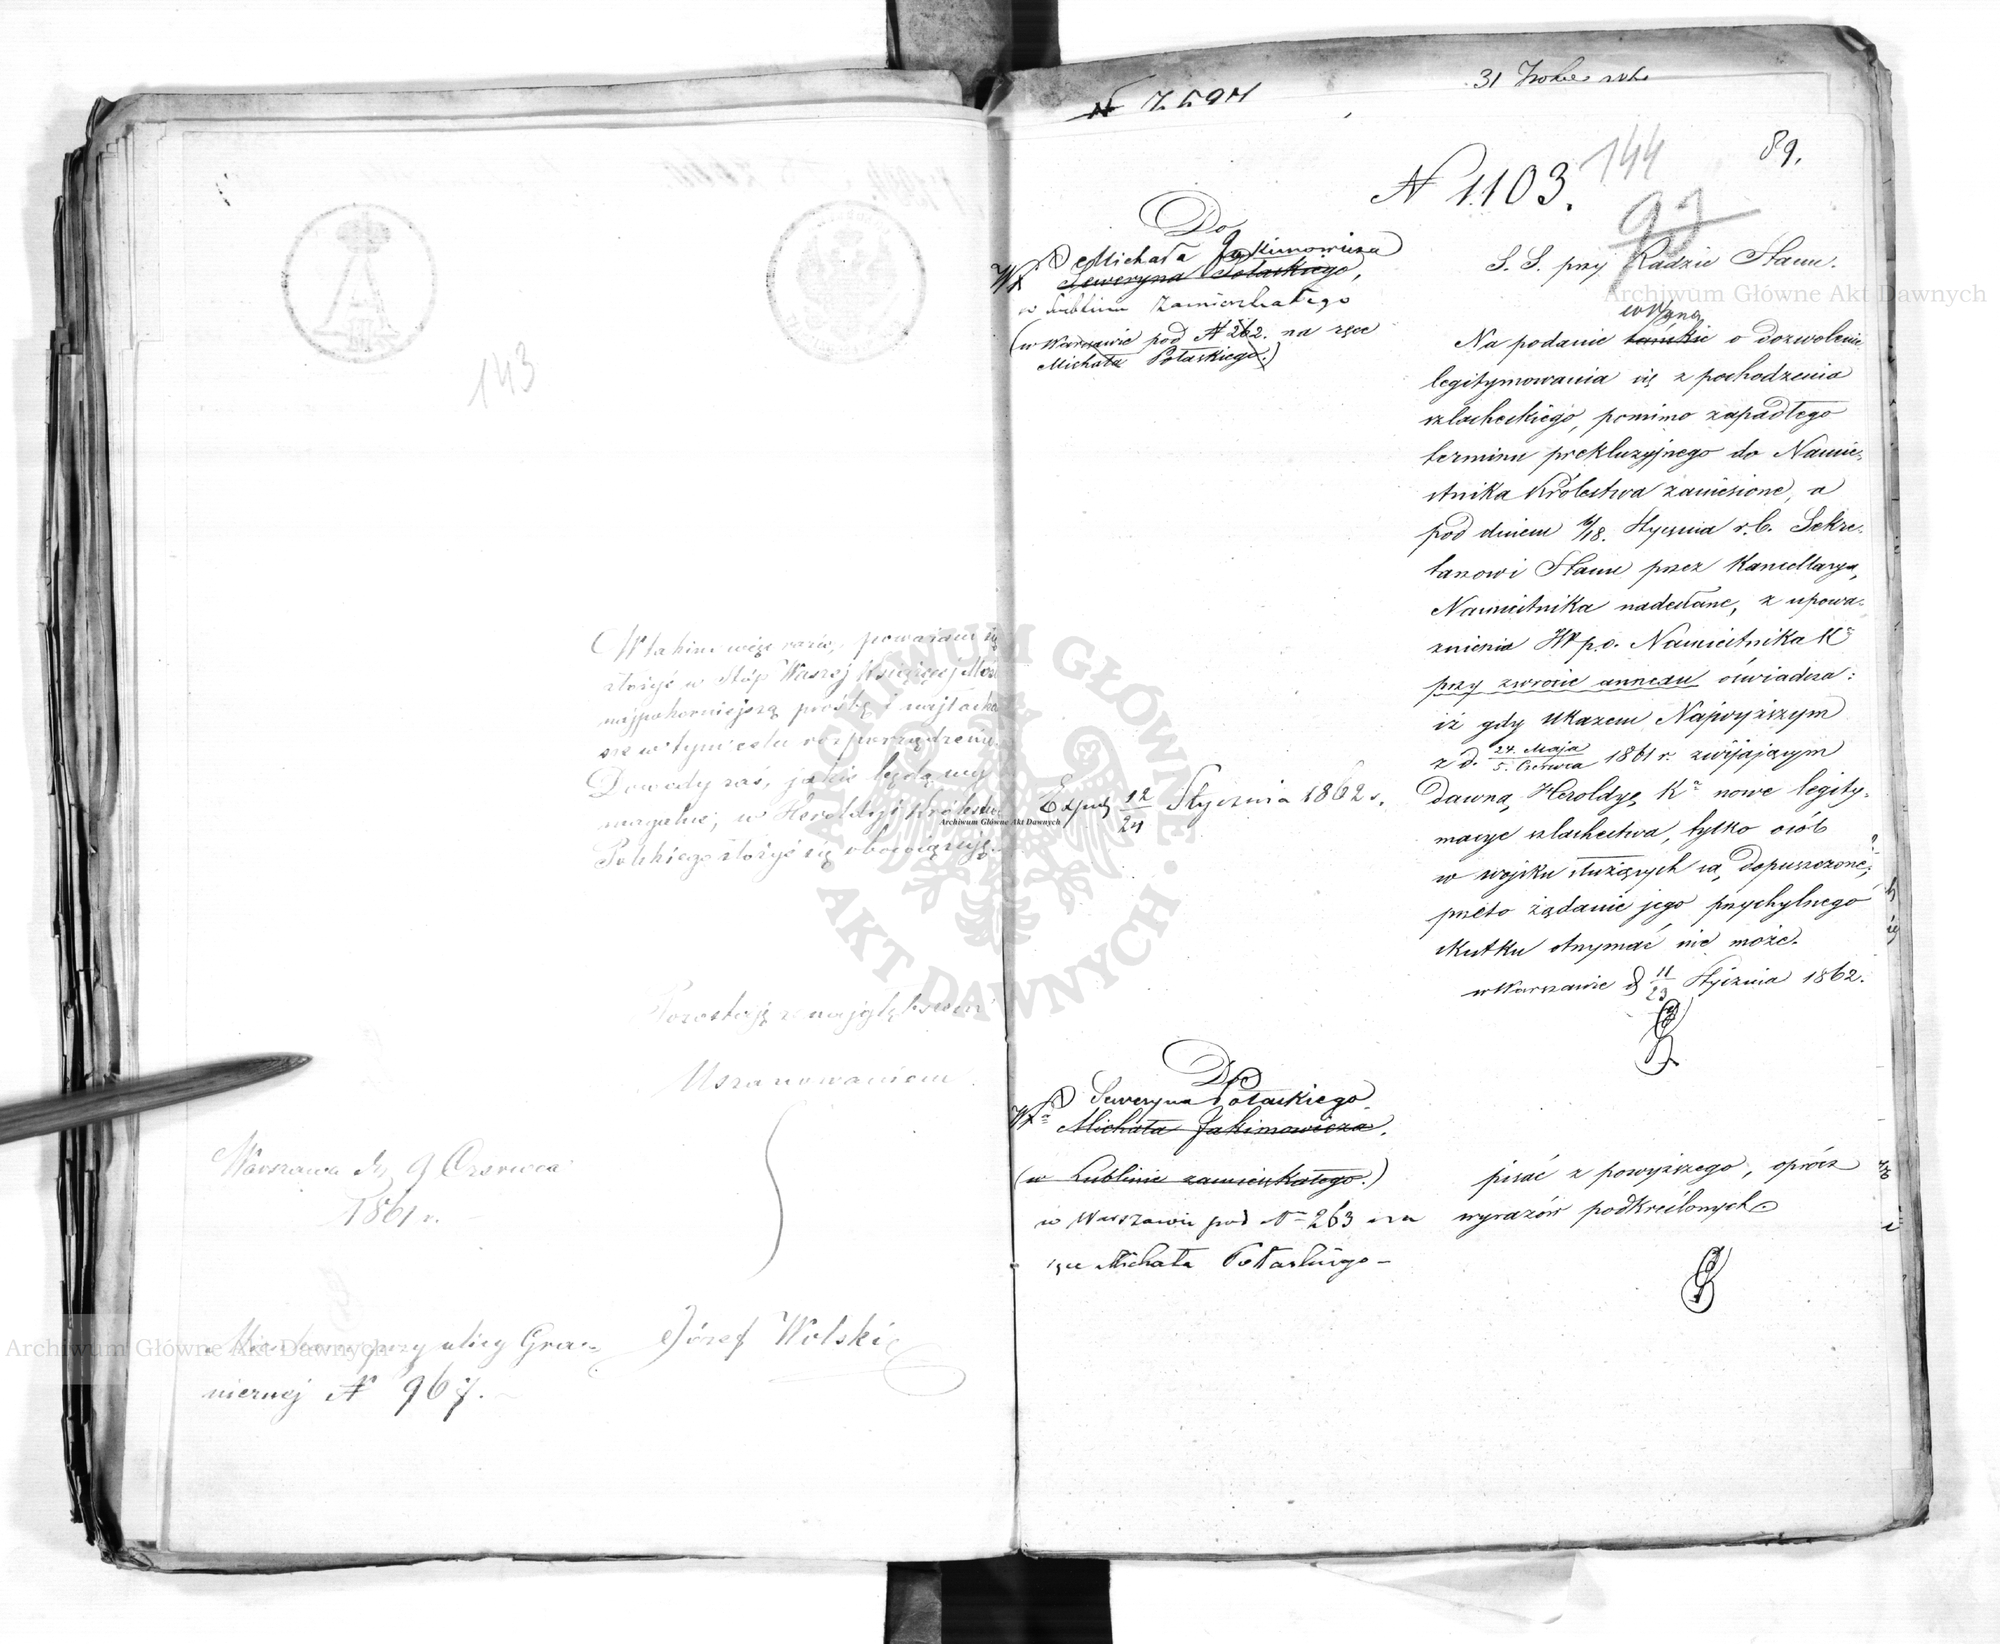 143
W takim więc razie, poważam się
złożyć u Stóp Waszej Książęcej Mości
najpokorniejszą prośbę i
się w tym celu rozporządzenie
Dowody zaś, jakie będą wy
magalne, w Heroldyi Królestwa
Polskiego złożyć się obowiązuję.
Pozostaję z najgłębszem
Uszanowaniem
Warszawa d. 9 Czerwca
1861 r.
Mieszkam przy ulicy Gra-
nicznej N 967.
Józef Wolski
N 7597
31
144
89.
N 1103.
93
Do
Michała Jakimowicza
Seweryna Potaskiego,
w Lublinie zamieszkałego
(w Warszawie pod N 262. na ręce
Michała Potaskiego.)
S. S. przy Radzie Stanu.
Na podanie o dozwolenie
legitymowania się z pochodzenia
szlacheckiego, pomimo zapadłego
terminu prekluzyjnego do Namie-
stnika Królestwa zaniesione, a
pod dniem 6/18. Stycznia r. b. Sekre-
tarzowi Stanu przez Kancellaryą
Namiestnika nadesłane, z upowa-
żnienia p. o. Namiestnika Kr
przy zwrocie annexu oświadcza:
iż gdy Ukazem Najwyższym
z d. 24. Maja / 5. Czerwca 1861 r. zwijającym
dawną Heroldyę Kr nowe legity-
macye szlachectwa, tylko osób
w wojsku służących są dopuszczone,
przeto żądanie jego przychylnego
skutku otrzymać nie może.
w Warszawie d 11/23 Stycznia 1862.
Exped 12/24 Stycznia 1862 r.
Do
Seweryna Potaskiego
Michała Jakimowicza.
(w Lublinie zamieszkałego.)
w Warszawie pod N 263 na
ręce Michała Potaskiego –
pisać z powyższego, oprócz
wyrazów podkreślonych.
Archiwum Główne Akt Dawnych
Archiwum Główne Akt Dawnych
Archiwum Główne Akt Dawnych
ARCHIWUM GŁÓWNE · AKT DAWNYCH ·